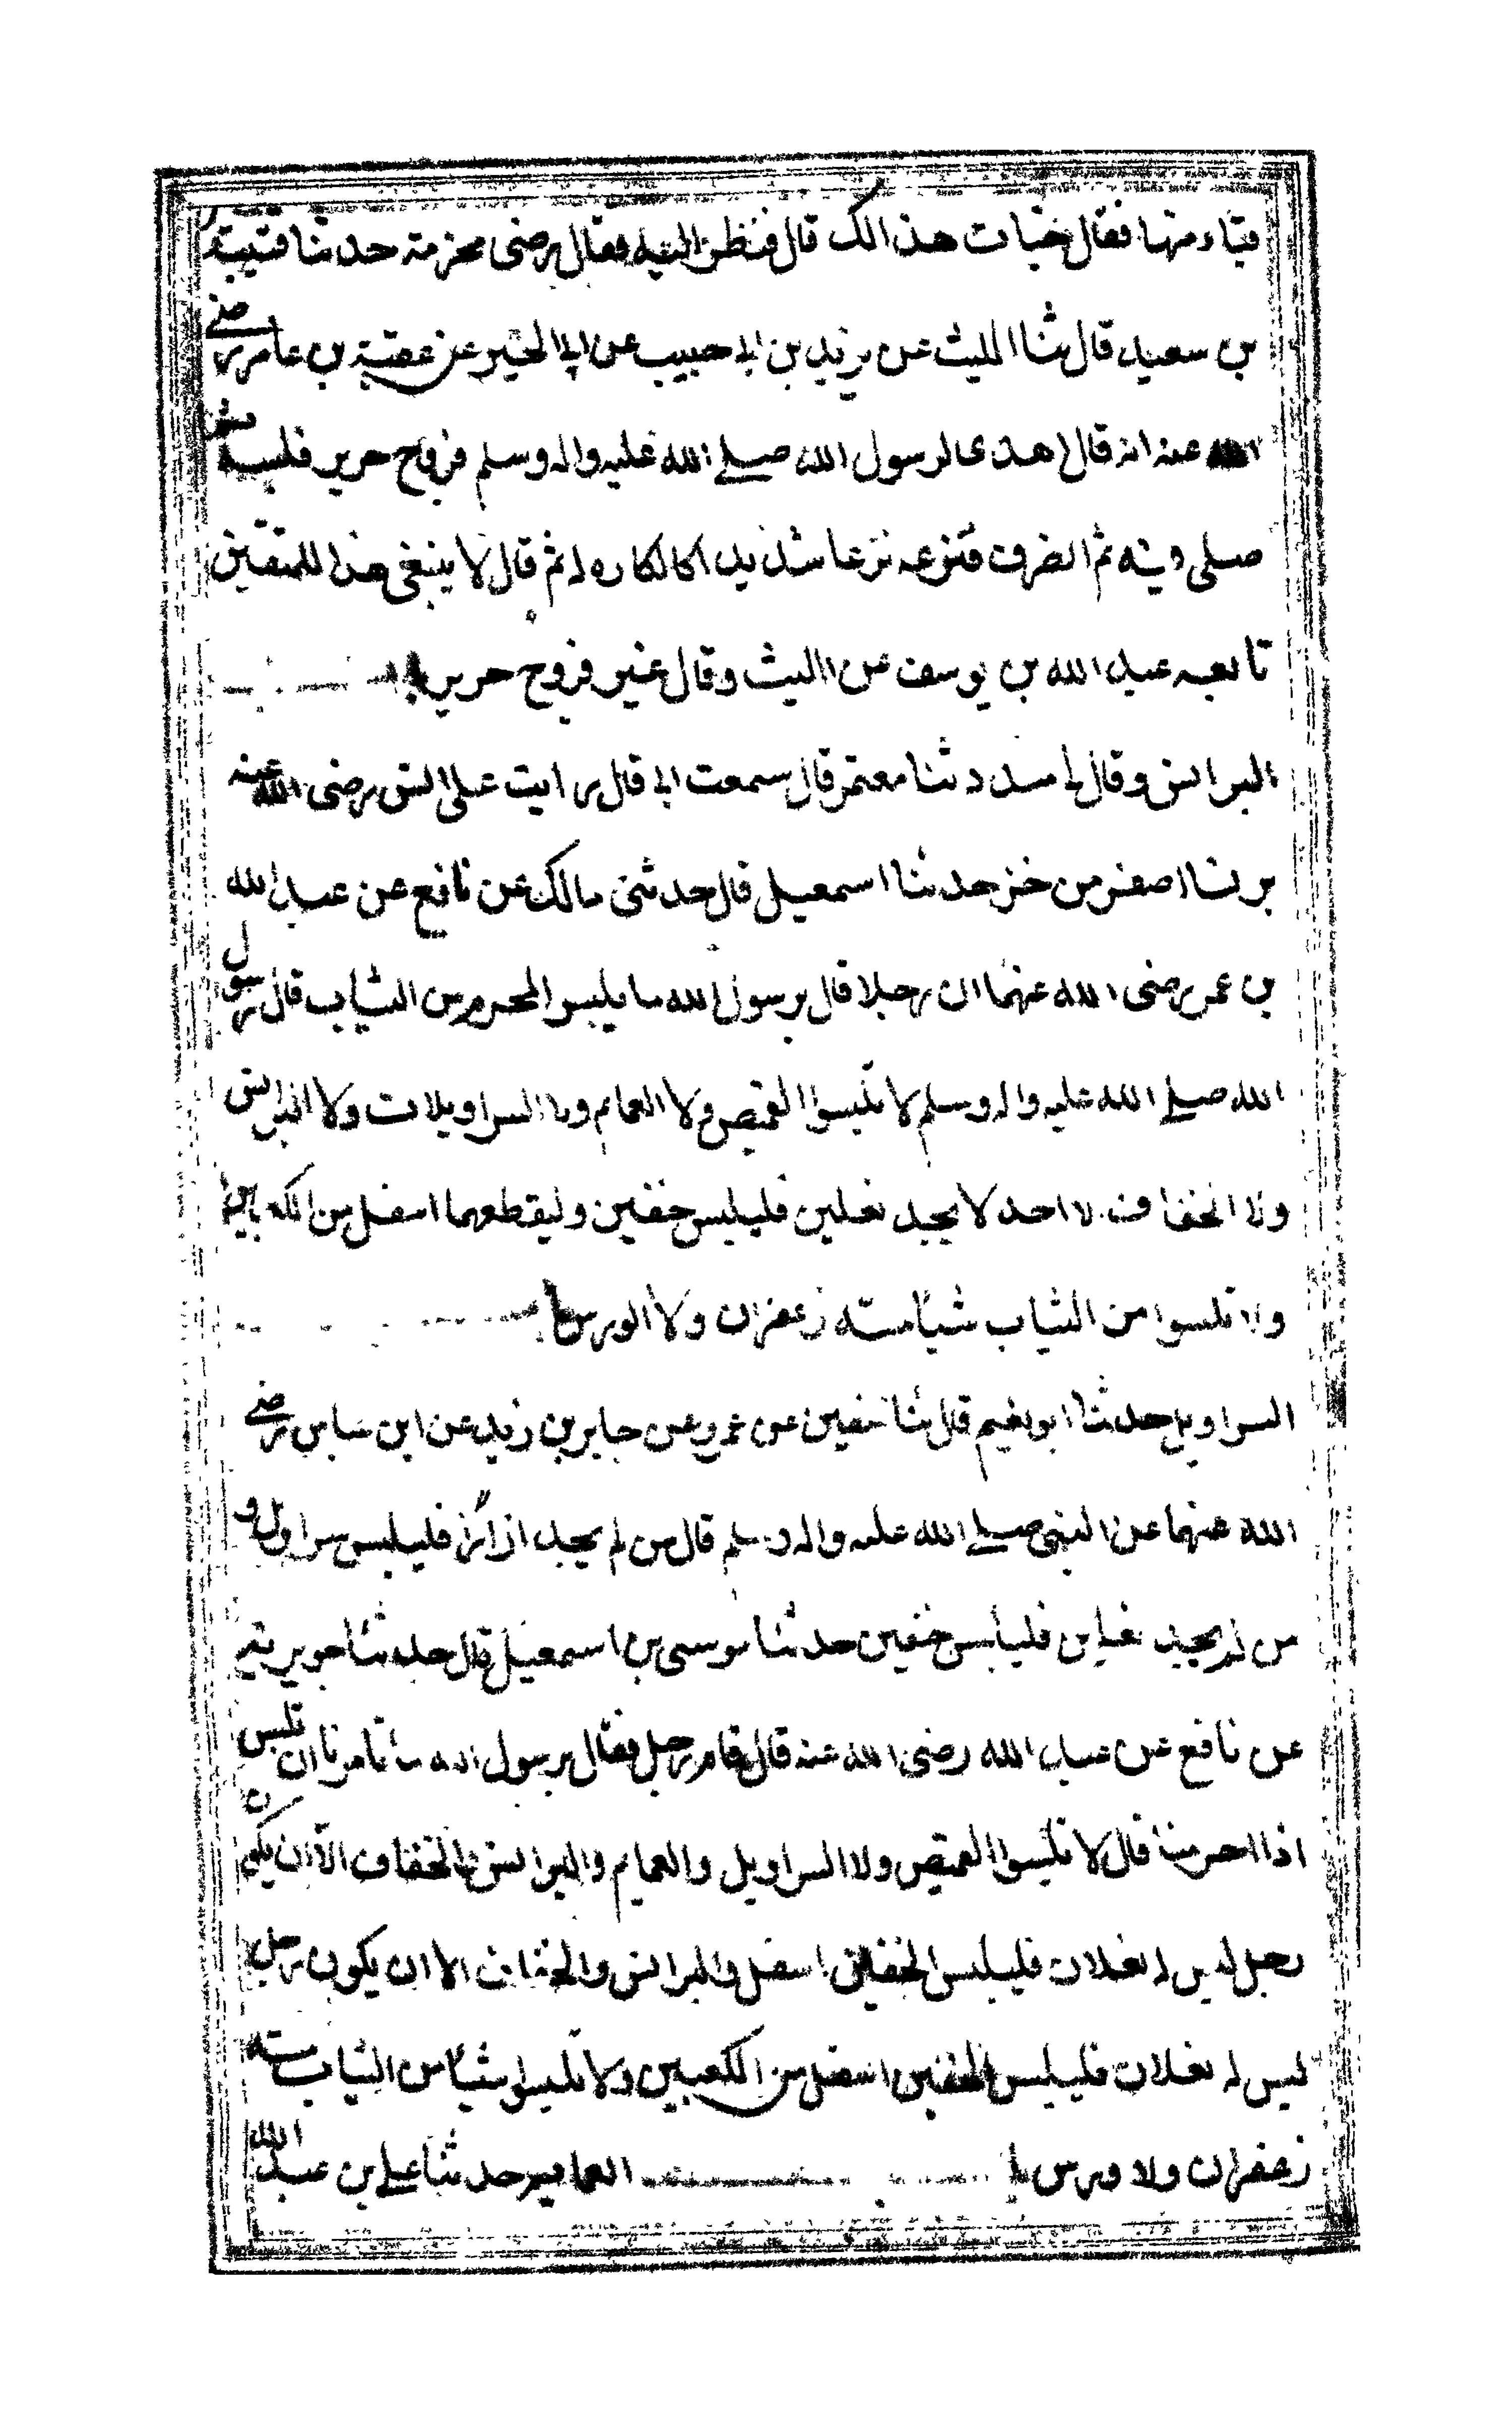 قباء منها فقال خبات هذا لك قال فنظر اليه فقال رضى مخرمة حدثنا قتيبة
بن سعيد قال ثنا الليث عن يزيد بن ابى حبيب عن ابى الخير عن عقبة بن عامر رضى
الله عنه انه قال اهدى لرسول الله صلى الله عليه واله وسلم فروج حرير فلبسه ثم
صلى فيه ثم انصرف فنزعه نزعا شديدا كالكاره له ثم قال لا ينبغى هذا للمتقين
تابعه عبد الله بن يوسف عن الليث وقال غير فروج حرير
البرانس وقال لى مسدد ثنا معتمر قال سمعت ابى قال رايت على انس رضى الله عنه
برنسا اصفر من خز حدثنا اسمعيل قال حدثنى مالك عن نافع عن عبد الله
بن عمر رضى الله عنهما ان رجلا قال يرسول الله ما يلبس المحرم من الثياب قال رسول
الله صلى الله عليه واله وسلم لا تلبسوا القميص ولا العمايم ولا السراويلات ولا البرانس
ولا الخفاف الا احد لا يجد نعلين فليلبس خفين وليقطعهما اسفل من الكعبين
ولا تلبسوا من الثياب شيئا مسه زعفران ولا الورس
السراويل حدثنا ابو نعيم قال ثنا سفين عن عمرو عن جابر بن زيد عن ابن عباس رضى
الله عنهما عن النبى صلى الله عليه واله وسلم قال من لم يجد ازارا فليلبس سراويل و
من لم يجد نعلين فليلبس خفين حدثنا موسى بن اسمعيل قال حدثنا جويرية
عن نافع عن عبد الله رضى الله عنه قال قام رجل فقال يرسول الله ما تامرنا ان تلبس
اذا احرمنا قال لا تلبسوا القميص ولا السراويل والعمايم والبرانس والخفاف الا ان يكون
رجل ليس له نعلان فليلبس الخفين اسفل والبرانس والخفاف الا ان يكون رجل
ليس له نعلان فليلبس الخفين اسفل من الكعبين ولا تلبسوا شيئا من الثياب مسه
زعفران ولا ورس العمايم حدثنا على بن عبد الله